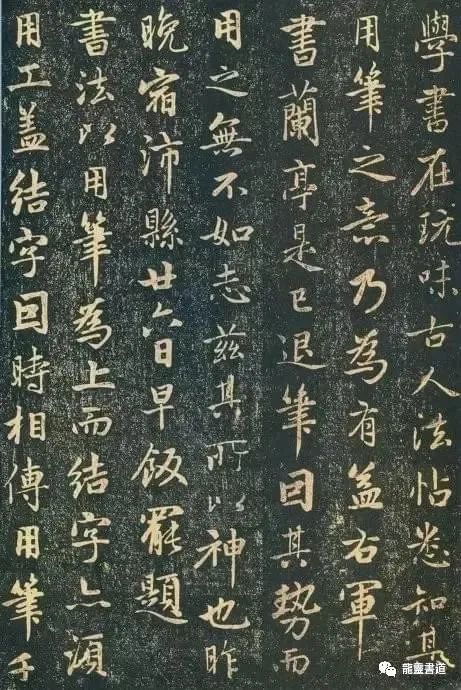 學書在玩味古人法帖悉知其
用筆之意乃為有益右軍
書蘭亭是已退筆因其勢而
用之無不如志茲其所以神也昨
晚宿沛縣廿六日早飯罷題
書法以用筆為上而結字亦須
用工盖結字因時相傳用筆千
龍靈書道